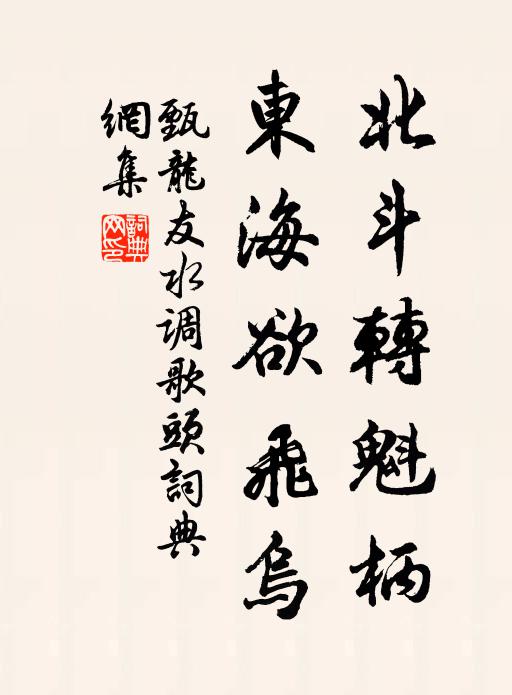 北斗轉魁柄
東海欲飛烏
甄龍友水调歌頭詞典
網集
詞典
網印